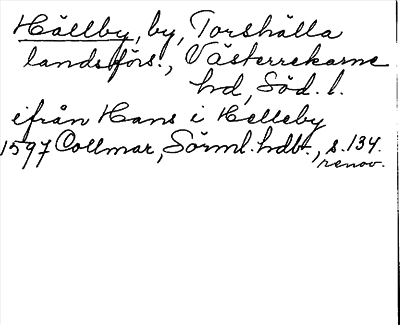 Hällby, by, Torshälla
landsförs., Västerrekarne
hd, Söd. l.
ifrån Hans i Helleby
1597 Collmar, Sörml. hdl., s. 134.
renov.